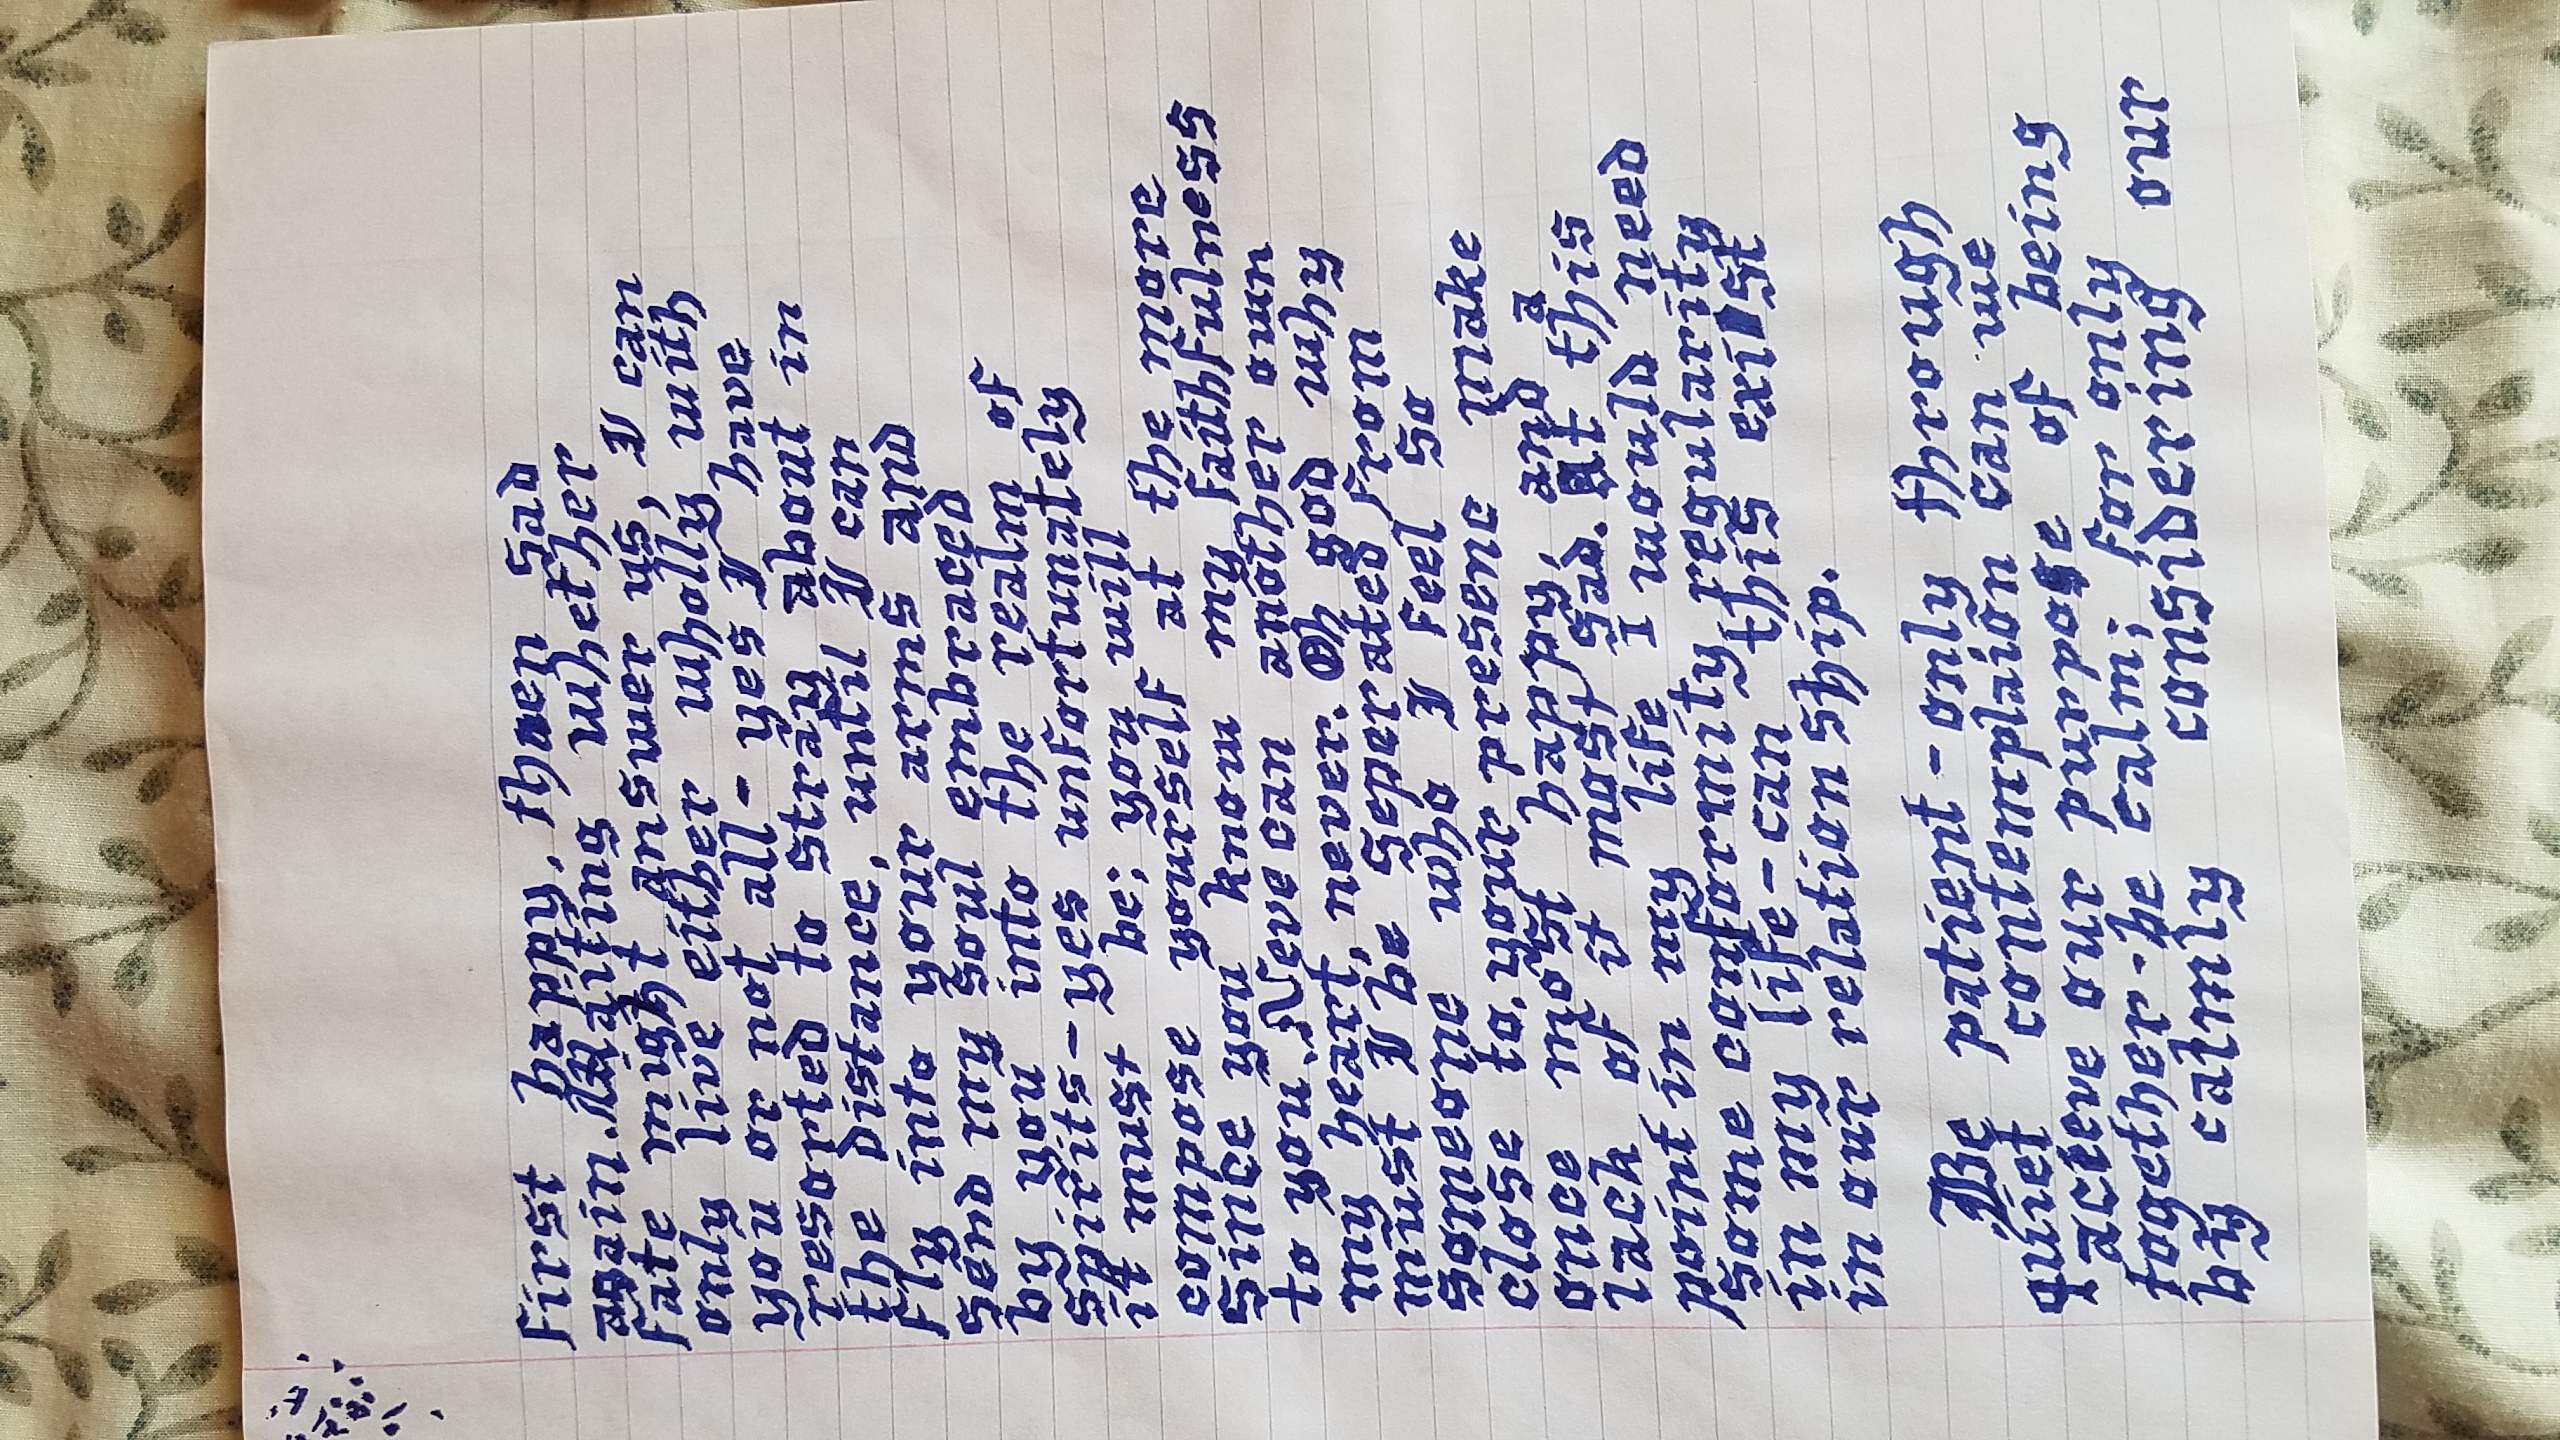 first happy, then sad
again. Waiting whether
fate might answer us, I can
only live either wholly with
you or not all - yes I have
resorted to stray about in
the distance, until I can
fly into your arms and
send my soul embraced
by you into the realm of
spirits - yes unfortunately
it must be; you will
compose yourself at the more
since you know my faithfulness
to you. Neve can another own
my heart, never. Oh god why
must I be seperated from
someone who I feel so
close to. your presenc make
once most happy, and a
lack of it most sad. At this
point in my life I would need
some conformity regularity
in my life - can this exist
in our relation ship.
Be patient - only through
quiet contemplaion can we
acieve our purpose of being
together - be calm; for only
by calmly considering our